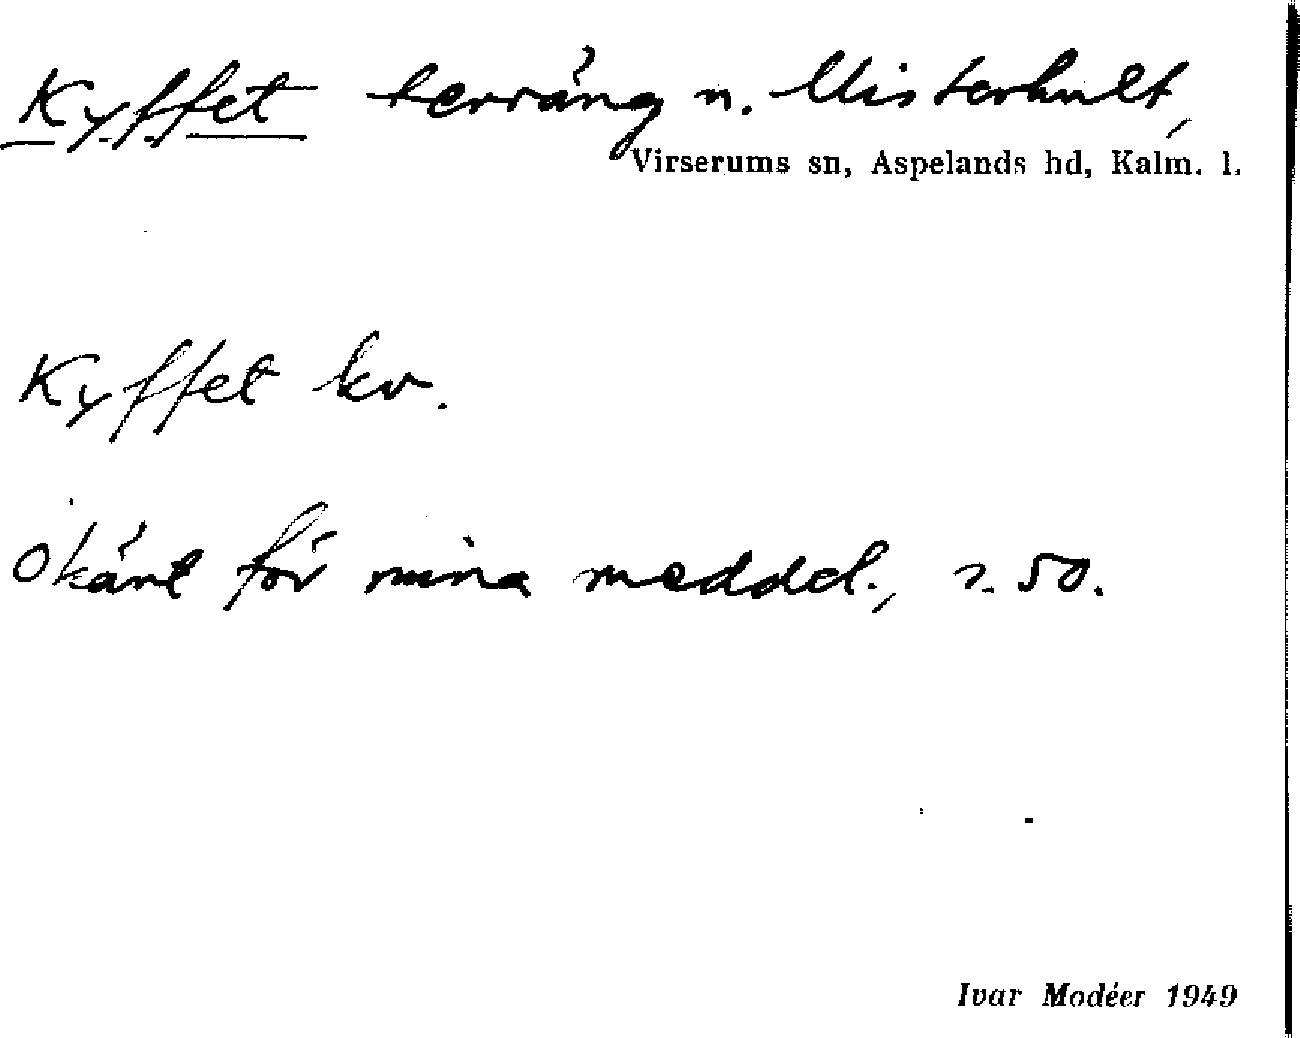 Kyffet terräng n. Misterhult,
Virserums sn, Aspelands hd, Kalm. l.
Kyffet kv.
Okänt för mina meddel., s. 50.
Ivar Modéer 1949